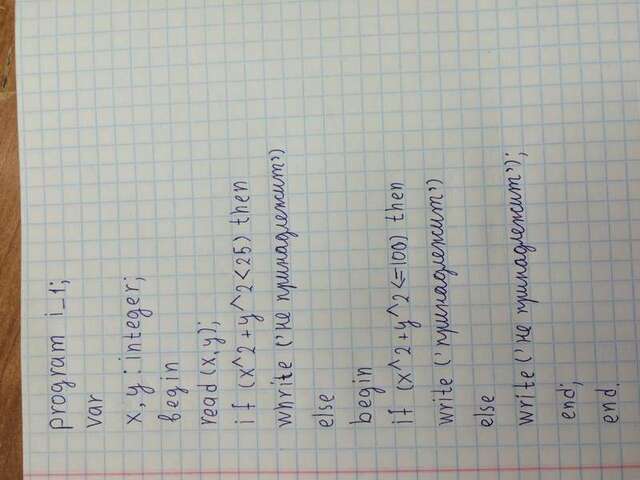 program i_1;
var
x, y : integer;
begin
read (x,y);
if (x^2+y^2<25) then
whrite ('не принадлежит')
else
begin
if (x^2+y^2<=100) then
write ('принадлежит')
else
write ('не принадлежит');
end;
end.